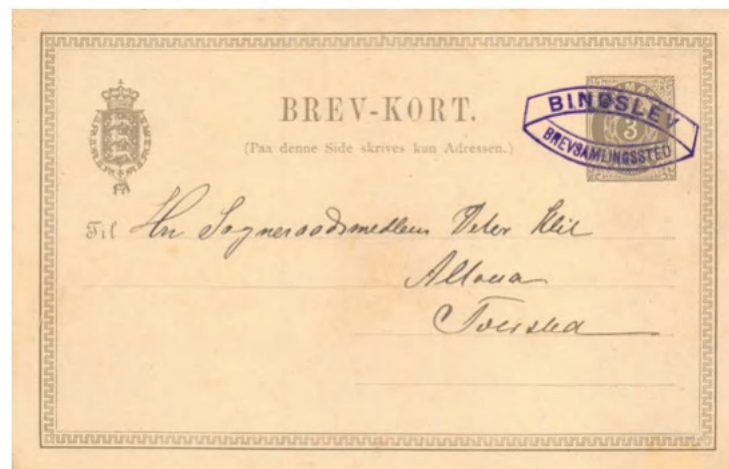 BREV-KORT.
(Paa denne Side skrives kun Adressen.)
3
BINDSLEV
BREVSAMLINGSSTED
Til Hr Sogneraadsmedlem Peter Klit
Altona
Tversted